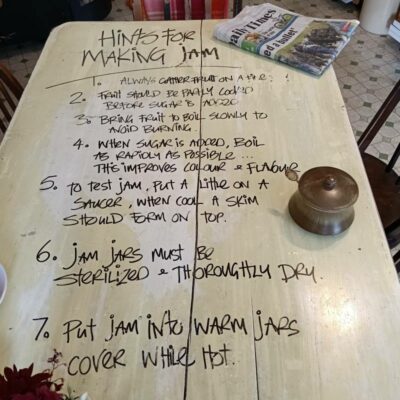 HINTS FOR
MAKING JAM
1. ALWAYS GATHER FRUIT ON A
2. FRUIT SHOULD BE FAIRLY COOKED
BEFORE SUGAR IS ADDED
3. BRING FRUIT TO BOIL SLOWLY TO
AVOID BURNING.
4. WHEN SUGAR IS ADDED, BOIL
AS RAPIDLY AS POSSIBLE ...
THIS IMPROVES COLOUR & FLAVOUR
5. TO TEST JAM, PUT A LITTLE ON A
SAUCER, WHEN COOL A SKIM
SHOULD FORM ON TOP.
6. JAM JARS MUST BE
STERILIZED & THOROUGHLY DRY.
7. PUT JAM INTO WARM JARS
COVER WHILE HOT.
Daily Times